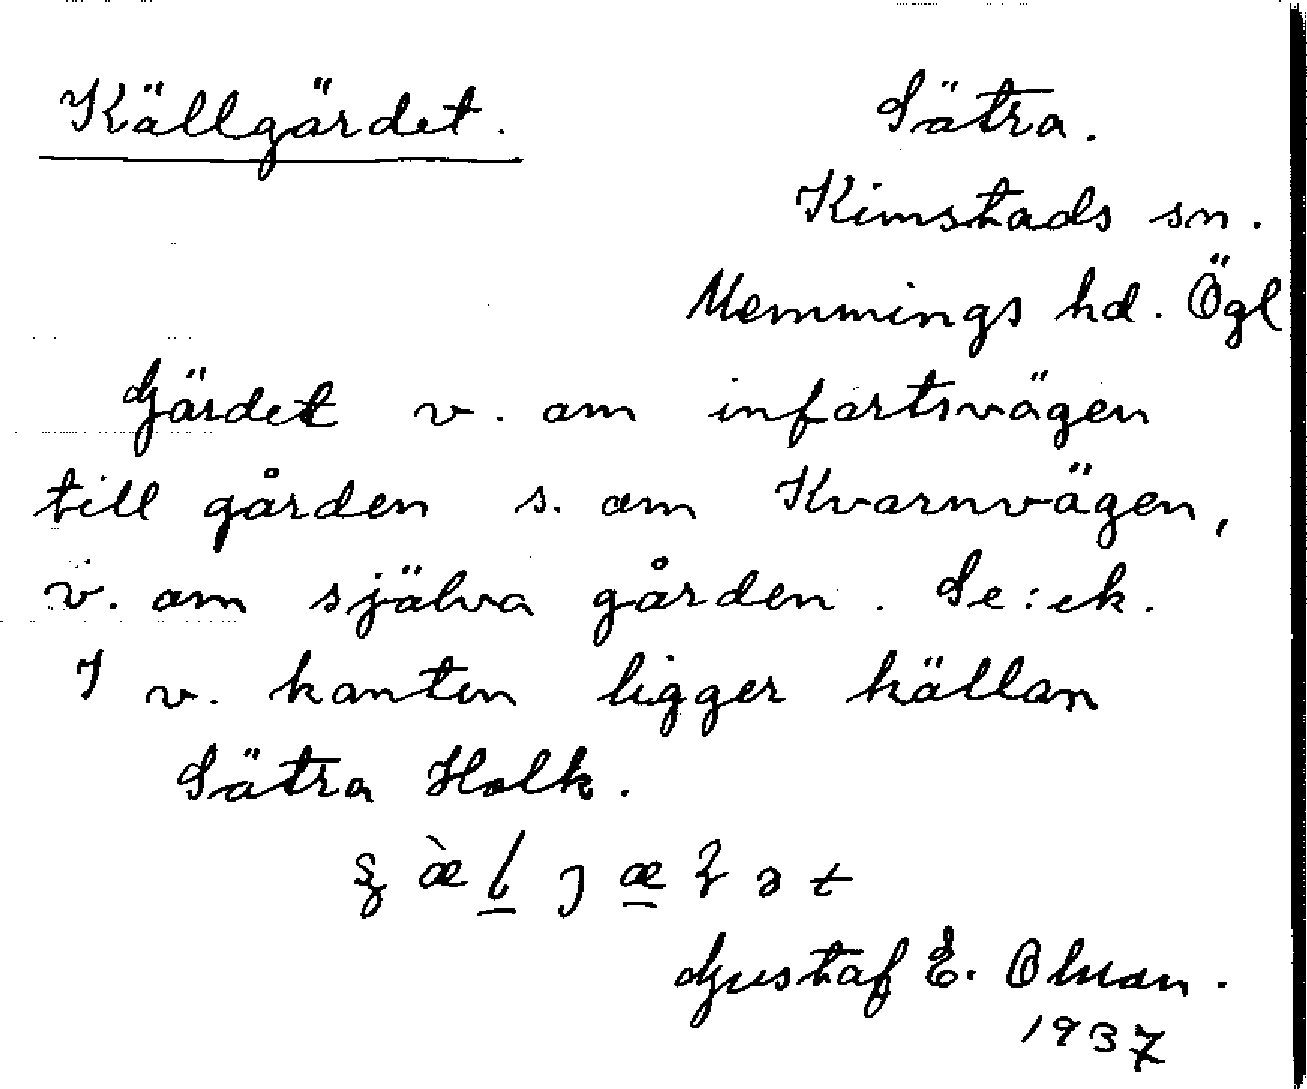 Källgärdet. Sätra.
Kimstads sn.
Memmings hd. Ögl
Gärdet v. om infartsvägen
till gården s. om Kvarnvägen,
v. om själva gården. Se: ek.
I v. kanten ligger källan
Sätra Holk.
Gustaf E. Olsson.
1937